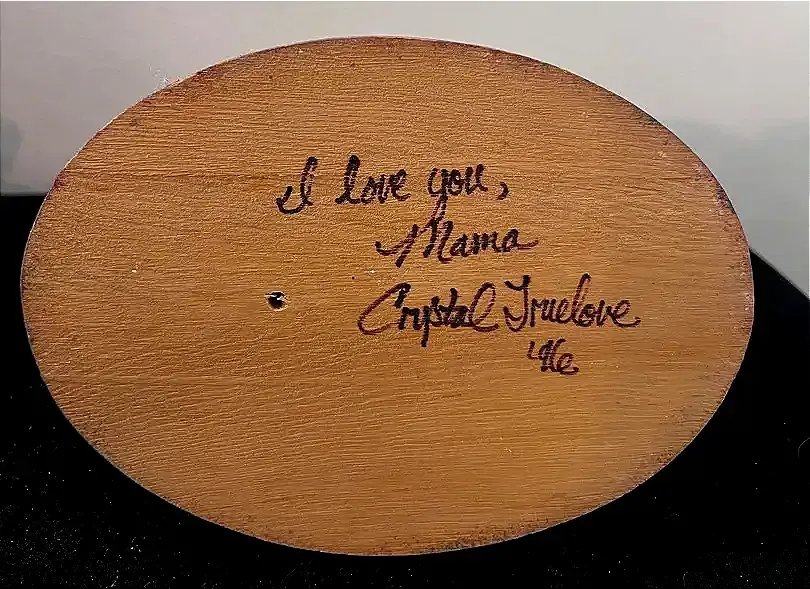 I love you,
Mama
Crystal Truelove
'96